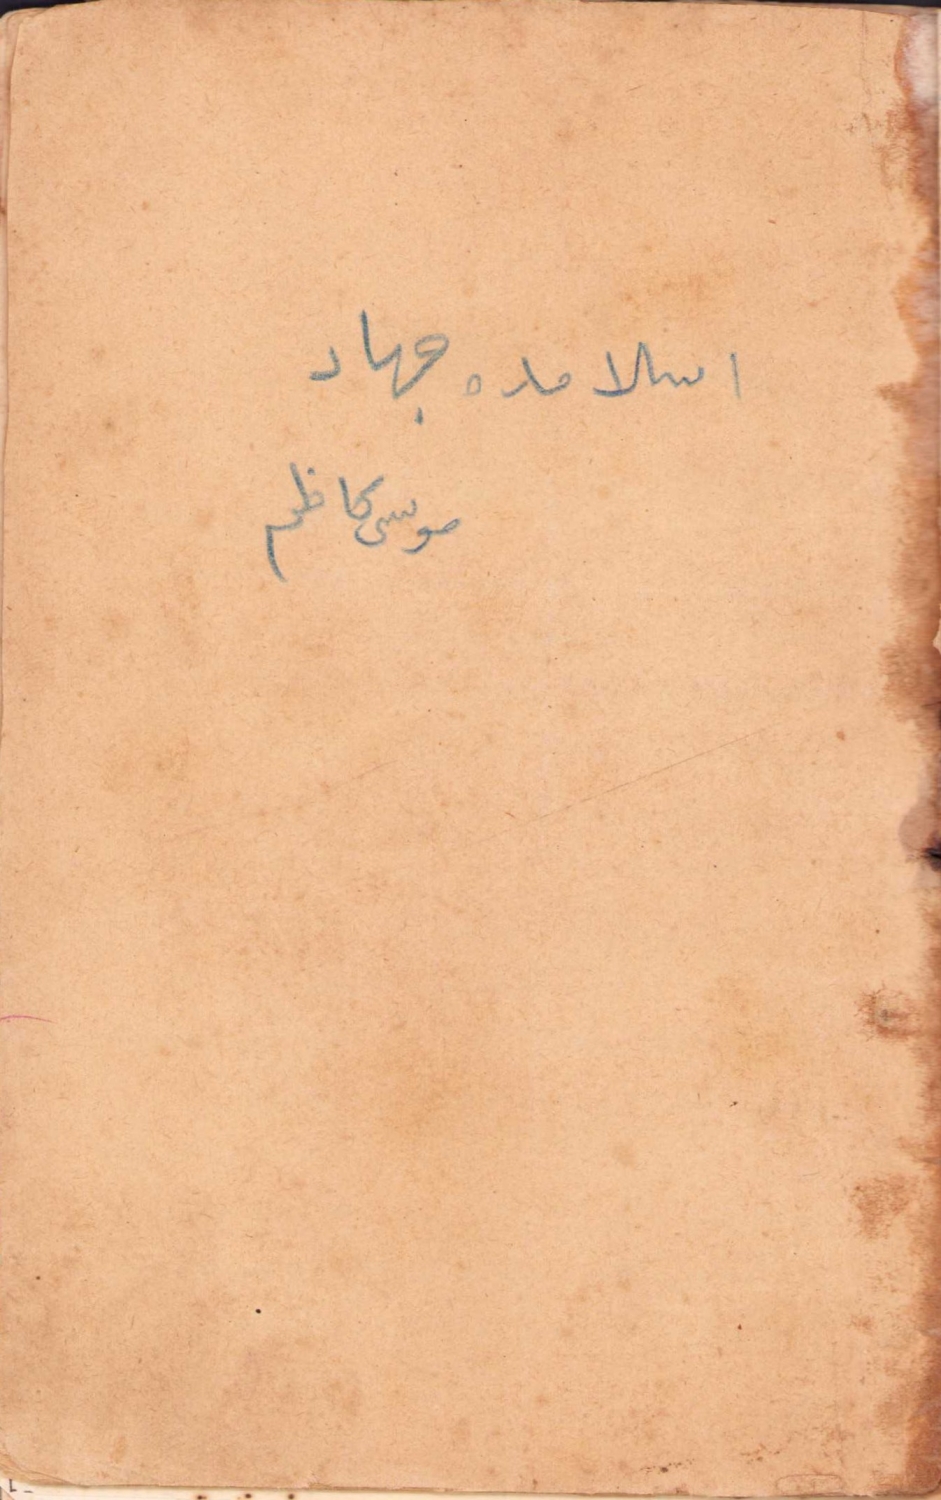 اسلامده جهاد
موسی كاظم